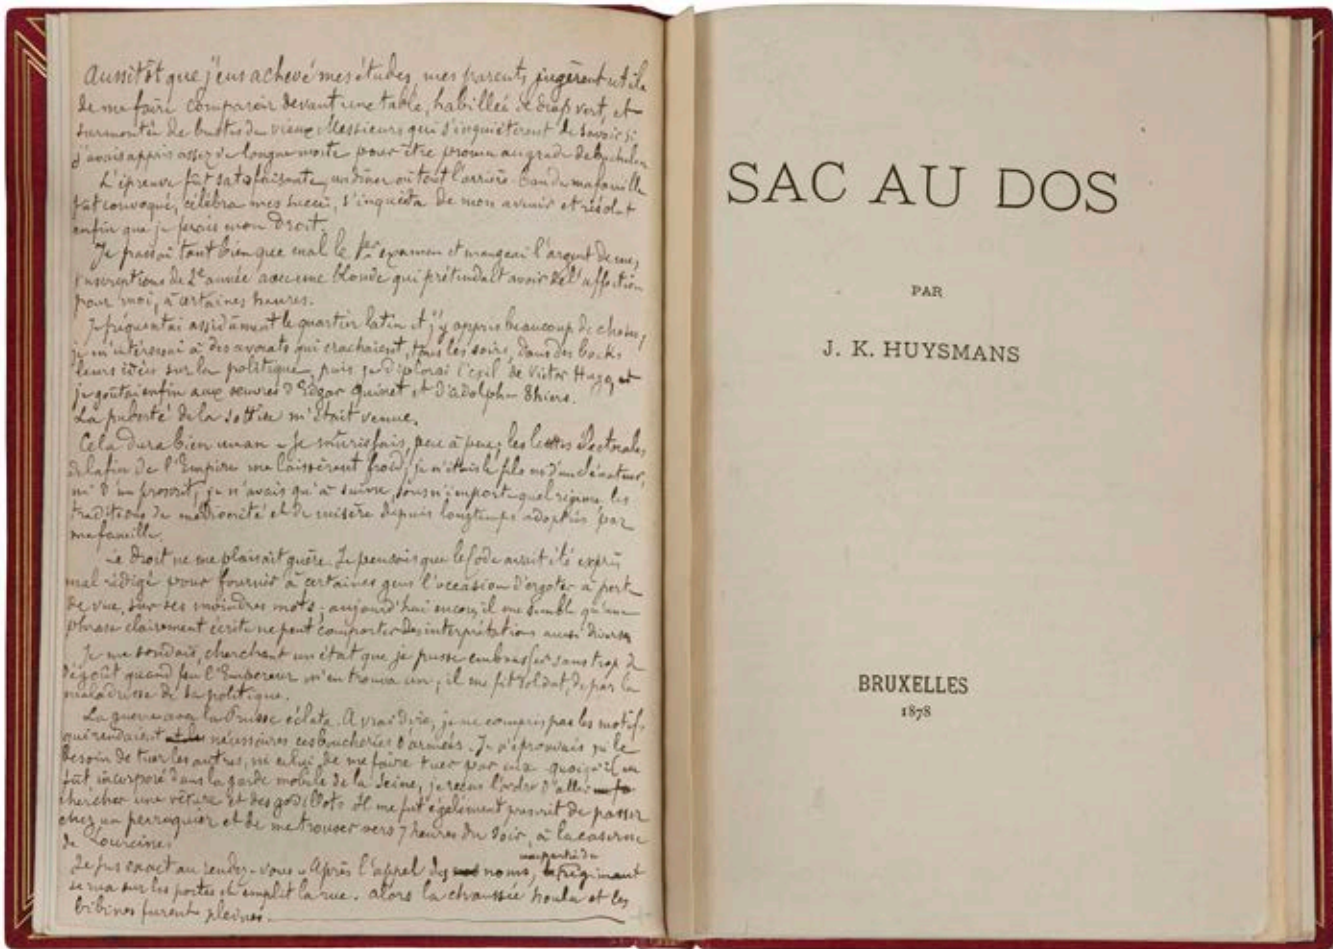 Aussitôt que j'eus achevé mes études, mes parents jugèrent utile
de me faire comparoir devant une table, habillée de drap vert, et
surmontée de bustes de vieux Messieurs qui s'inquiétèrent de savoir si
j'avais appris assez de langue morte pour être promu au grade de bachelier
L'épreuve fut satisfaisante, un dîner où tout l'arrière-ban de ma famille
fut convoqué, célébra mes succès, s'inquiéta de mon avenir et résolut
enfin que je ferais mon Droit.
Je passai tant bien que mal le 1er examen et mangeai l'argent de mes
inscriptions de 2e année avec une blonde qui prétendait avoir de l'affection
pour moi, à certaines heures.
Je fréquentai assidûment le quartier latin et j'y appris beaucoup de choses,
je m'intéressai à des avocats qui crachaient, tous les soirs, dans des bocks
leurs idées sur la politique, puis je déplorai l'exil de Victor Hugo, et
je goûtai enfin aux œuvres d'Edgar Quinet et d'adolphe Thiers.
La puberté de la sottise m'était venue.
Cela dura bien un an - je peu à peu, les luttes électorales
de la fin de l'Empire me laissèrent froid, je n'étais le fils ni d'un sénateur,
ni d'un proscrit, je n'avais qu'à suivre, sous n'importe quel régime, les
traditions de médiocrité et de misère depuis longtemps adoptées par
ma famille.
Le Droit ne me plaisait guère. Je pensais que le Code avait été exprès
mal rédigé pour fournir à certaines gens l'occasion d'ergoter à perte
de vue, sur ses moindres mots; aujourd'hui encore, il me semble qu'une
phrase clairement écrite ne peut comporter des interprétations aussi diverses
Je me sondais, cherchant un état que je pusse embrasser sans trop de
dégoût quand feu l'Empereur m'en trouva un; il me fit soldat, de par la
maladresse de sa politique.
La guerre avec la Prusse éclata. A vrai dire, je ne compris pas les motifs
qui rendaient nécessaires ces boucheries d'armées. Je n'éprouvais ni le
besoin de tuer les autres, ni celui de me faire tuer par eux quoiqu'il en
fût, incorporé dans la garde mobile de la Seine, je reçus l'ordre d'aller
chercher une vêture et des godillots Il me fut également prescrit de passer
chez un perruquier et de me trouver vers 7 heures du soir, à la caserne
de Lourcine.
Je fus exact au rendez-vous. Après l'appel des noms, une partie du régiment
se rua sur les portes et emplit la rue. alors la chaussée houla et les
bibines furent pleines.
SAC AU DOS
PAR
J. K. HUYSMANS
BRUXELLES
1878